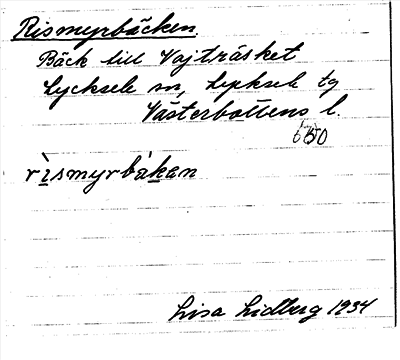 Rismyrbäcken.
Bäck till Vajträsket
Lycksele sn, Lycksele tg
Västerbottens l.
rìsmyrbäkan
Lisa Lidberg 1934